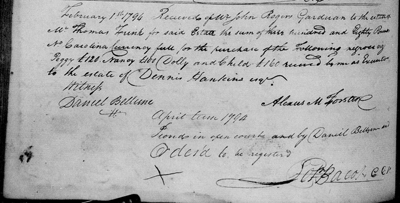 February 1st 1794 Received of Mr John Rogers Garduan to the
Mr Thomas Funk for said Estate the sum of three hundred and Eighty
No Carolina Currency full, for the purchase of the following negroes
Peggy £120 Nancy Dolly and Child £160 received by me as Executor
to the estate of Dennis Hankins esqr
Witness
Daniel Bellune Alexius M Forster
April term 1794
in open court and by Daniel Bellune
Orderd to be registerd
C C